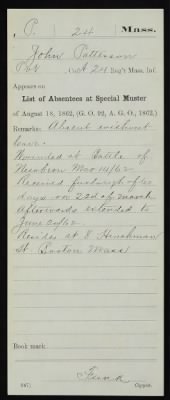 P. 24 Mass.
John Patterson
Pvt, Co. A, 24 Reg't Mass. Inf.
Appears on
List of Absentees at Special Muster
of August 18, 1862, (G. O. 92, A. G. O., 1862.)
Remarks: Absent without
leave.
Wounded at Battle of
Newbern Mar 14/62
Received furlough of 60
days on 22d of March
afterwards extended to
June 20/62
Resides at 8 Henchman
St. Boston Mass
Book mark:
(47) Copyist.